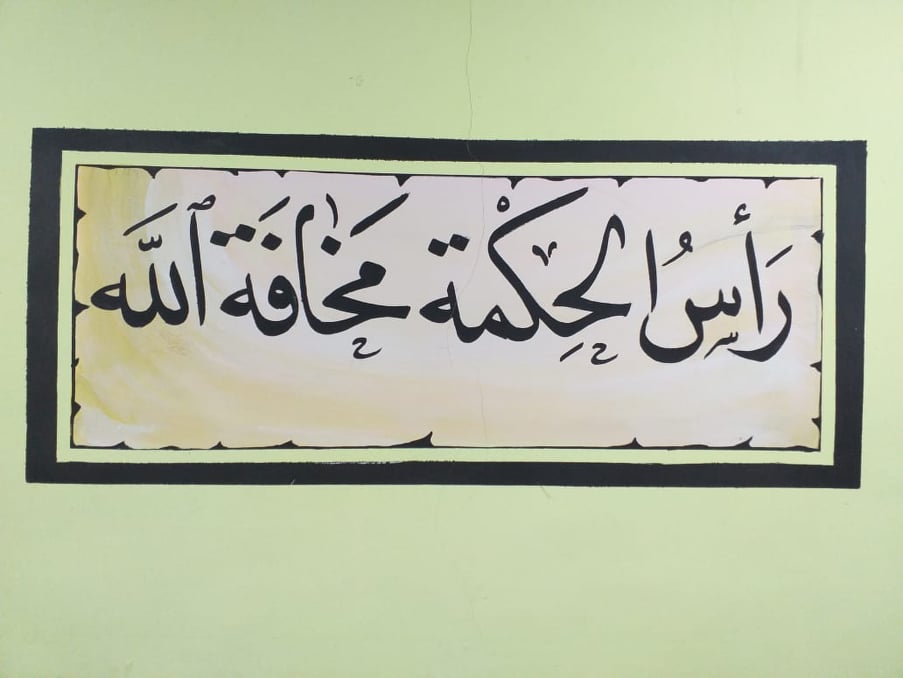 رَأْسُ الحِكْمَة مَخَافَةُ اللَّه